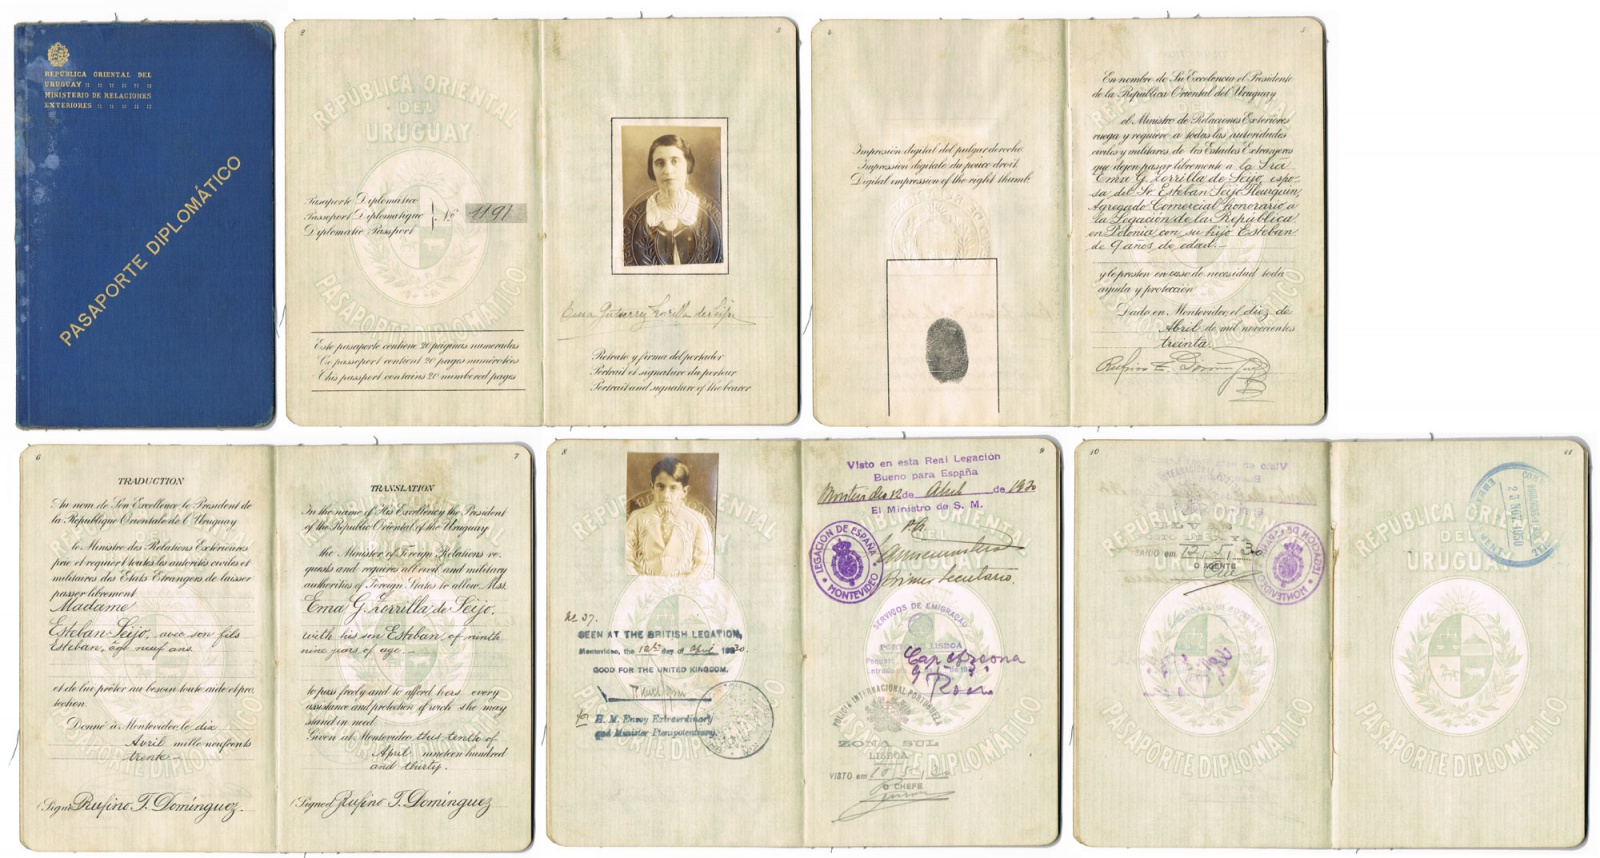 REPÚBLICA ORIENTAL DEL
URUGUAY :: :: :: :: :: ::
MINISTERIO DE RELACIONES
EXTERIORES :: :: :: :: ::
PASAPORTE DIPLOMÁTICO
2
REPÚBLICA ORIENTAL
DEL
URUGUAY
Pasaporte Diplomático
Passeport Diplomatique
Diplomatic Passport
Nº 1191
PASAPORTE DIPLOMÁTICO
Este pasaporte contiene 20 páginas numeradas
Ce passeport contient 20 pages numérotées
This passport contains 20 numbered pages
3
Ema Gutierrez Zorrilla de Seijo
Retrato y firma del portador
Portrait et signature du porteur
Portrait and signature of the bearer
4
Impresión digital del pulgar derecho
Impression digitale du pouce droit
Digital impression of the right thumb
5
En nombre de Su Excelencia el Presidente
de la República Oriental del Uruguay
el Ministro de Relaciones Exteriores
ruega y requiere a todas las autoridades
civiles y militares de los Estados Extranjeros
que dejen pasar libremente a la Sra
Ema G. Zorrilla de Seijo, espo-
sa del Sr Esteban Seijo
Agregado Comercial honorario a
la Legación de la República
en Polonia con su hijo Esteban
de 9 años de edad.-
y le presten en caso de necesidad toda
ayuda y protección
Dado en Montevideo el diez de
Abril de mil novecientos
treinta.
6
TRADUCTION
Au nom de Son Excellence le President de
la République Orientale de l'Uruguay
le Ministre des Relations Extérieures
prie et requiert toutes les autorités civiles et
militaires des Etats Etrangers de laisser
passer librement
Madame
Esteban Seijo, avec son fils
Esteban, âgé neuf ans.
et de lui prêter au besoin toute aide et pro
tection.
Donné à Montevideo le dix
Avril mille neufcents
trente.-
(Signé Rufino T. Domínguez.
7
TRANSLATION
In the name of His Excellency the President
of the Republic Oriental of the Uruguay
the Minister of Foreign Relations re-
quests and requires all civil and military
authorities of Foreign States to allow Mss.
Ema G. Zorrilla de Seijo,
with his son Esteban, of ninth
nine years of age.-
to pass freely and to afford hers. every
assistance and protection of wich she may
stand in need.
Given at Montevideo this tenth of
April nineteen hundred
and thirty.
(Signed Rufino T. Domínguez
8
No 37.
SEEN AT THE BRITISH LEGATION,
Montevideo, the 12th day of April 1930.
GOOD FOR THE UNITED KINGDOM.
for
H. M. Envoy Extraordinary
and Minister Plenipotentiary.
9
Visto en esta Real Legación
Bueno para España
Montevideo 12 de Abril de 1930
El Ministro de S. M.
LEGACION DE ESPAÑA
MONTEVIDEO
Primer Secretario.
SERVIÇOS DE EMIGRAÇÃO
LISBOA
Cap Arcona
POLICIA INTERNACIONAL PORTUGUESA
ZONA SUL
LISBOA
VISTO em
O CHEFE
PASAPORTE DIPLOMÁTICO
10
SAIDO em
O AGENTE
11
REPÚBLICA ORIENTAL
DEL
URUGUAY
PASAPORTE DIPLOMÁTICO